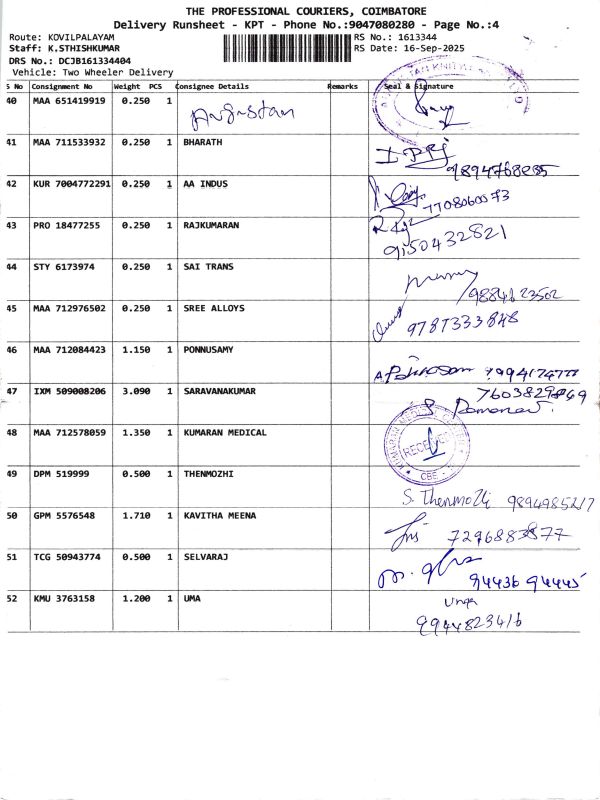 THE PROFESSIONAL COURIERS, COIMBATORE
Delivery Runsheet - KPT - Phone No.:9047080280 - Page No.:4
Route: KOVILPALAYAM RS No.: 1613344
Staff: K.STHISHKUMAR RS Date: 16-Sep-2025
DRS No.: DCJB161334404
Vehicle: Two Wheeler Delivery
S No Consignment No Weight PCS Consignee Details Remarks Seal & Signature
40 MAA 651419919 0.250 1
41 MAA 711533932 0.250 1 BHARATH
42 KUR 7004772291 0.250 1 AA INDUS
7708060073
43 PRO 18477255 0.250 1 RAJKUMARAN
9150432821
44 STY 6173974 0.250 1 SAI TRANS
45 MAA 712976502 0.250 1 SREE ALLOYS
9787333848
46 MAA 712084423 1.150 1 PONNUSAMY
47 IXM 509008206 3.090 1 SARAVANAKUMAR
48 MAA 712578059 1.350 1 KUMARAN MEDICAL
KUMARAN MEDICAL
RECEIVED
CBE
49 DPM 519999 0.500 1 THENMOZHI
S. Thenmozhi
50 GPM 5576548 1.710 1 KAVITHA MEENA
7296883877
51 TCG 50943774 0.500 1 SELVARAJ
94436 94445
52 KMU 3763158 1.200 1 UMA
9944823416